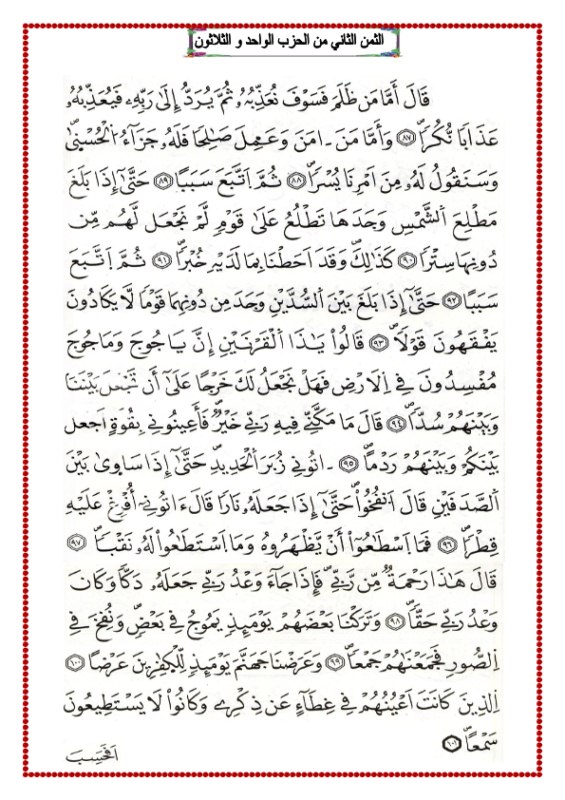 الثمن الثاني من الحزب الواحد و الثلاثون
قَالَ أَمَّا مَن ظَلَمَ فَسَوْفَ نُعَذِّبُهُۥ ثُمَّ يُرَدُّ إِلَىٰ رَبِّهِۦ فَيُعَذِّبُهُۥ
عَذَابًا نُّكُرًا ٨٧ وَأَمَّا مَنَ ـ امَنَ وَعَمِلَ صَٰلِحًا فَلَهُۥ جَزَآءُ اُ۬لْحُسْنۭيٰ
وَسَنَقُولُ لَهُۥ مِنَ اَمْرِنَا يُسْرًا ٨٨ ثُمَّ اَ۪تَّبَعَ سَبَبًا ٨٩ حَتَّىٰٓ إِذَا بَلَغَ
مَطْلِعَ اَ۬لشَّمْسِ وَجَدَهَا تَطْلُعُ عَلَىٰ قَوْمٍ لَّمْ نَجْعَل لَّهُم مِّن
دُونِهَا سِتْرًا ٩٠ كَذَٰلِكَ وَقَدَ اَحَطْنَا بِمَا لَدَيْهِ خُبْرًا ٩١ ثُمَّ اَ۪تَّبَعَ
سَبَبًا ٩٢ حَتَّىٰٓ إِذَا بَلَغَ بَيْنَ اَ۬لسُّدَّيْنِ وَجَدَ مِن دُونِهِمَا قَوْمًا لَّا يَكَادُونَ
يَفْقَهُونَ قَوْلًا ٩٣ قَالُواْ يَٰذَا اَ۬لْقَرْنَيْنِ إِنَّ يَاجُوجَ وَمَاجُوجَ
مُفْسِدُونَ فِے اِ۬لَارْضِ فَهَلْ نَجْعَلُ لَكَ خَرْجًا عَلَىٰٓ أَن تَجْعَلَ بَيْنَنَا
وَبَيْنَهُمْ سُدًّا ٩٤ قَالَ مَا مَكَّنِّے فِيهِ رَبِّے خَيْرٌ فَأَعِينُونِے بِقُوَّةٍ اَجْعَلْ
بَيْنَكُمْ وَبَيْنَهُمْ رَدْمًا ٩٥ ـ اتُونِے زُبَرَ اَ۬لْحَدِيدِ حَتَّىٰٓ إِذَا سَاو۪يٰ بَيْنَ
اَ۬لصَّدَفَيْنِ قَالَ اَ۟نفُخُواْ حَتَّىٰٓ إِذَا جَعَلَهُۥ نَارًا قَالَ ءَاتُونِےٓ أُفْرِغْ عَلَيْهِ
قِطْرًا ٩٦ فَمَا اَ۪سْطَٰعُوٓاْ أَنْ يَّظْهَرُوهُ وَمَا اَ۪سْتَطَٰعُواْ لَهُۥ نَقْبًا ٩٧
قَالَ هَٰذَا رَحْمَةٌ مِّن رَّبِّے فَإِذَا جَآءَ وَعْدُ رَبِّے جَعَلَهُۥ دَكًّا وَكَانَ
وَعْدُ رَبِّے حَقًّا ٩٨ وَتَرَكْنَا بَعْضَهُمْ يَوْمَئِذٍ يَمُوجُ فِے بَعْضٍ وَنُفِخَ فِے
اِ۬لصُّورِ فَجَمَعْنَٰهُمْ جَمْعًا ٩٩ وَعَرَضْنَا جَهَنَّمَ يَوْمَئِذٍ لِّلْكٰ۪فِرِينَ عَرْضًا ١٠٠
اِ۬لذِينَ كَانَتَ اَعْيُنُهُمْ فِے غِطَآءٍ عَن ذِكْرِے وَكَانُواْ لَا يَسْتَطِيعُونَ
سَمْعًا ١٠١
اَفَحَسِبَ